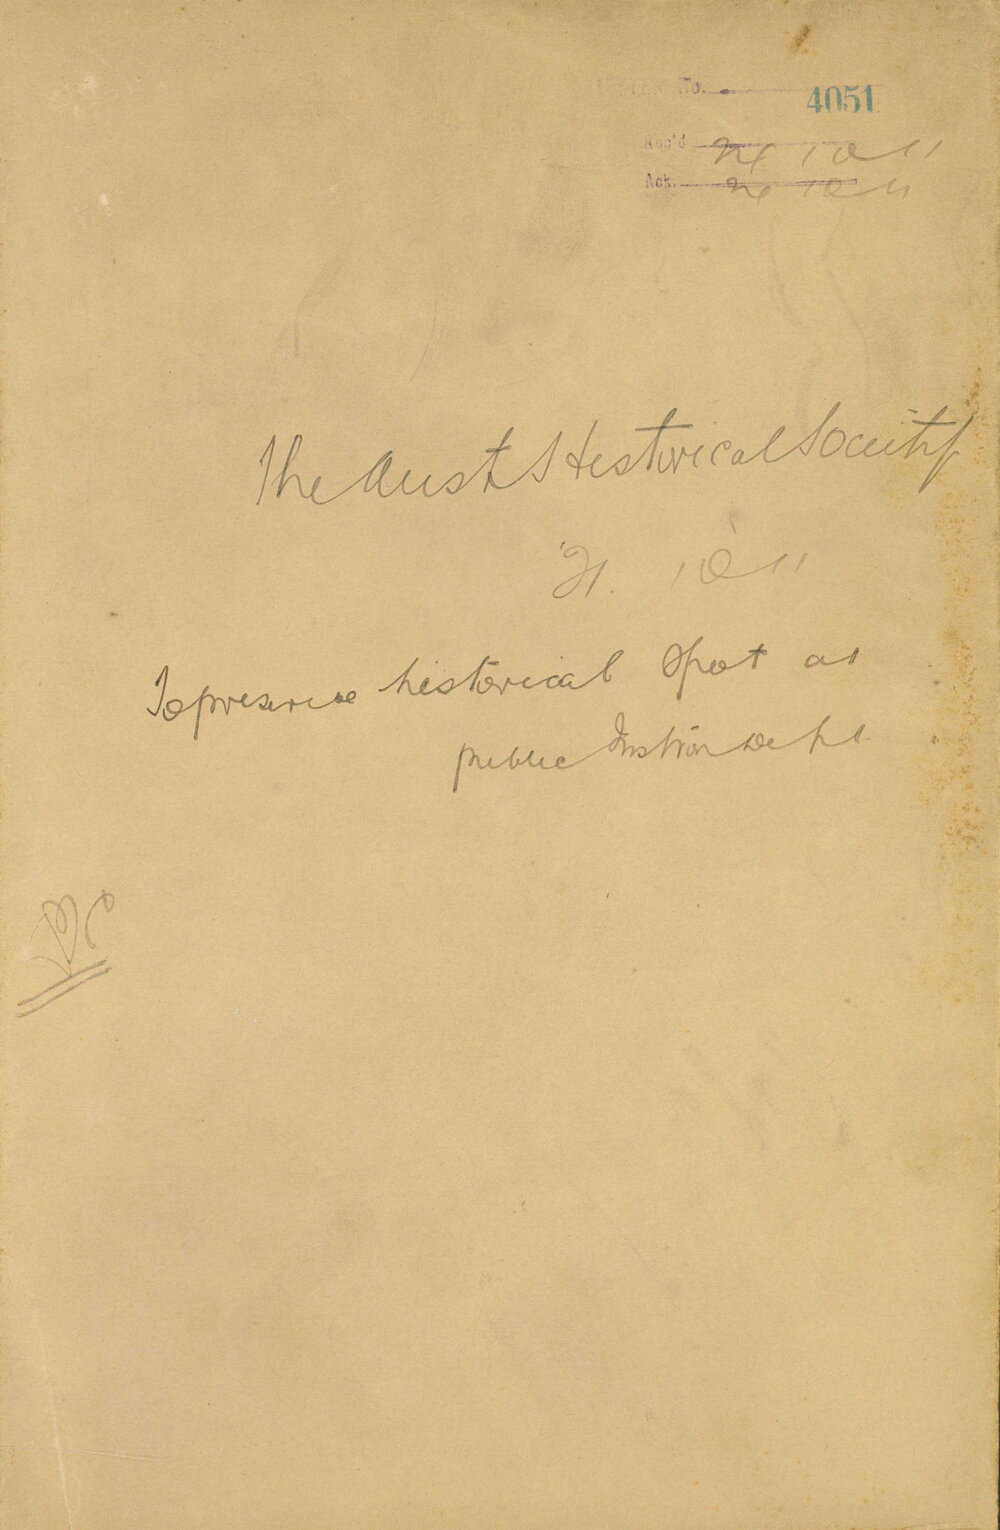 No. 4051
Rec'd 10 11
Ack. 10 11
The Aust Historical Society
21. 10 11
To preserve historical Spot at
public Instion Dept.